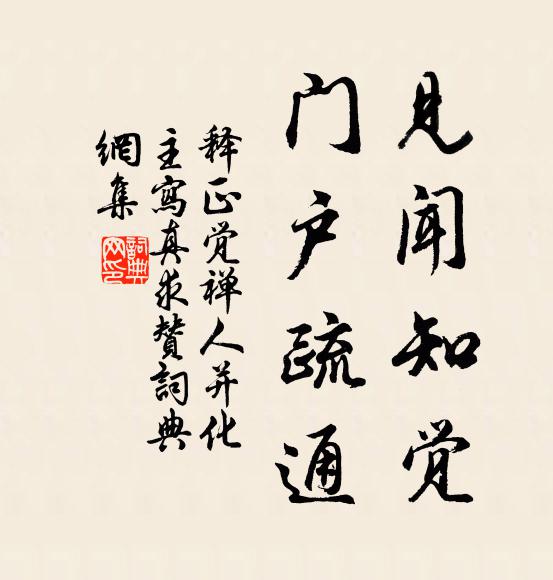 见闻知觉
门户疏通
释正觉禅人并化
主寫真求赞詞典
網集
詞典網印